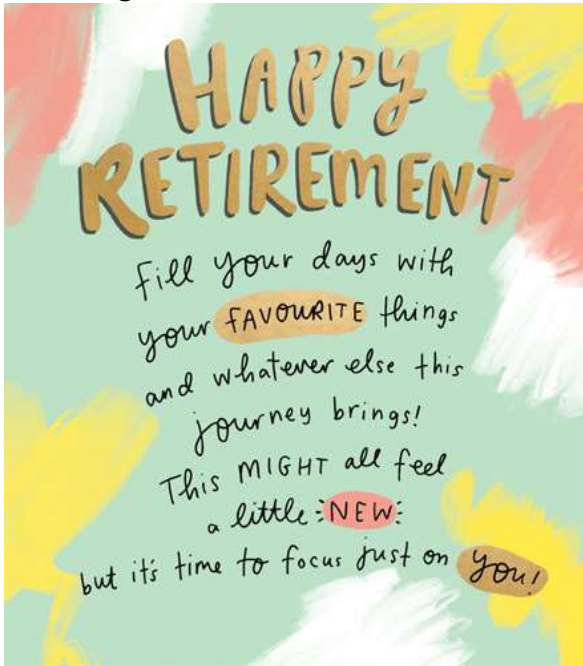 HAPPY
RETIREMENT
fill your days with
your fAVOURITE things
and whatever else this
journey brings!
This MIGHT all feel
a little NEW
but it's time to focus just on you!